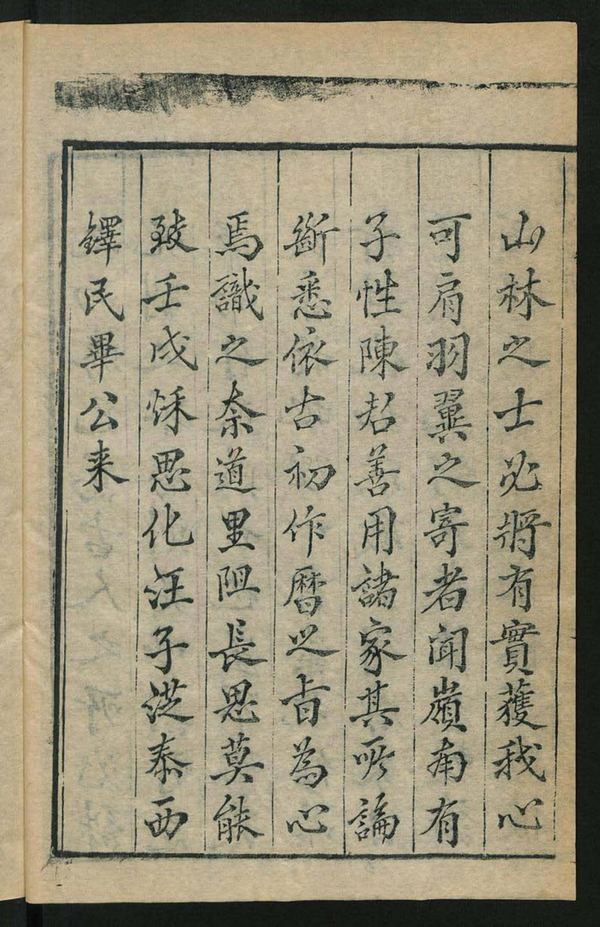 山林之士必將有實獲我心
可肩羽翼之寄者聞嶺南有
子性陳君善用諸家其所論
斷悉依古初作曆之旨為心
焉識之奈道里阻長思莫能
致壬戌秌思化汪子從泰西
鐸民畢公来